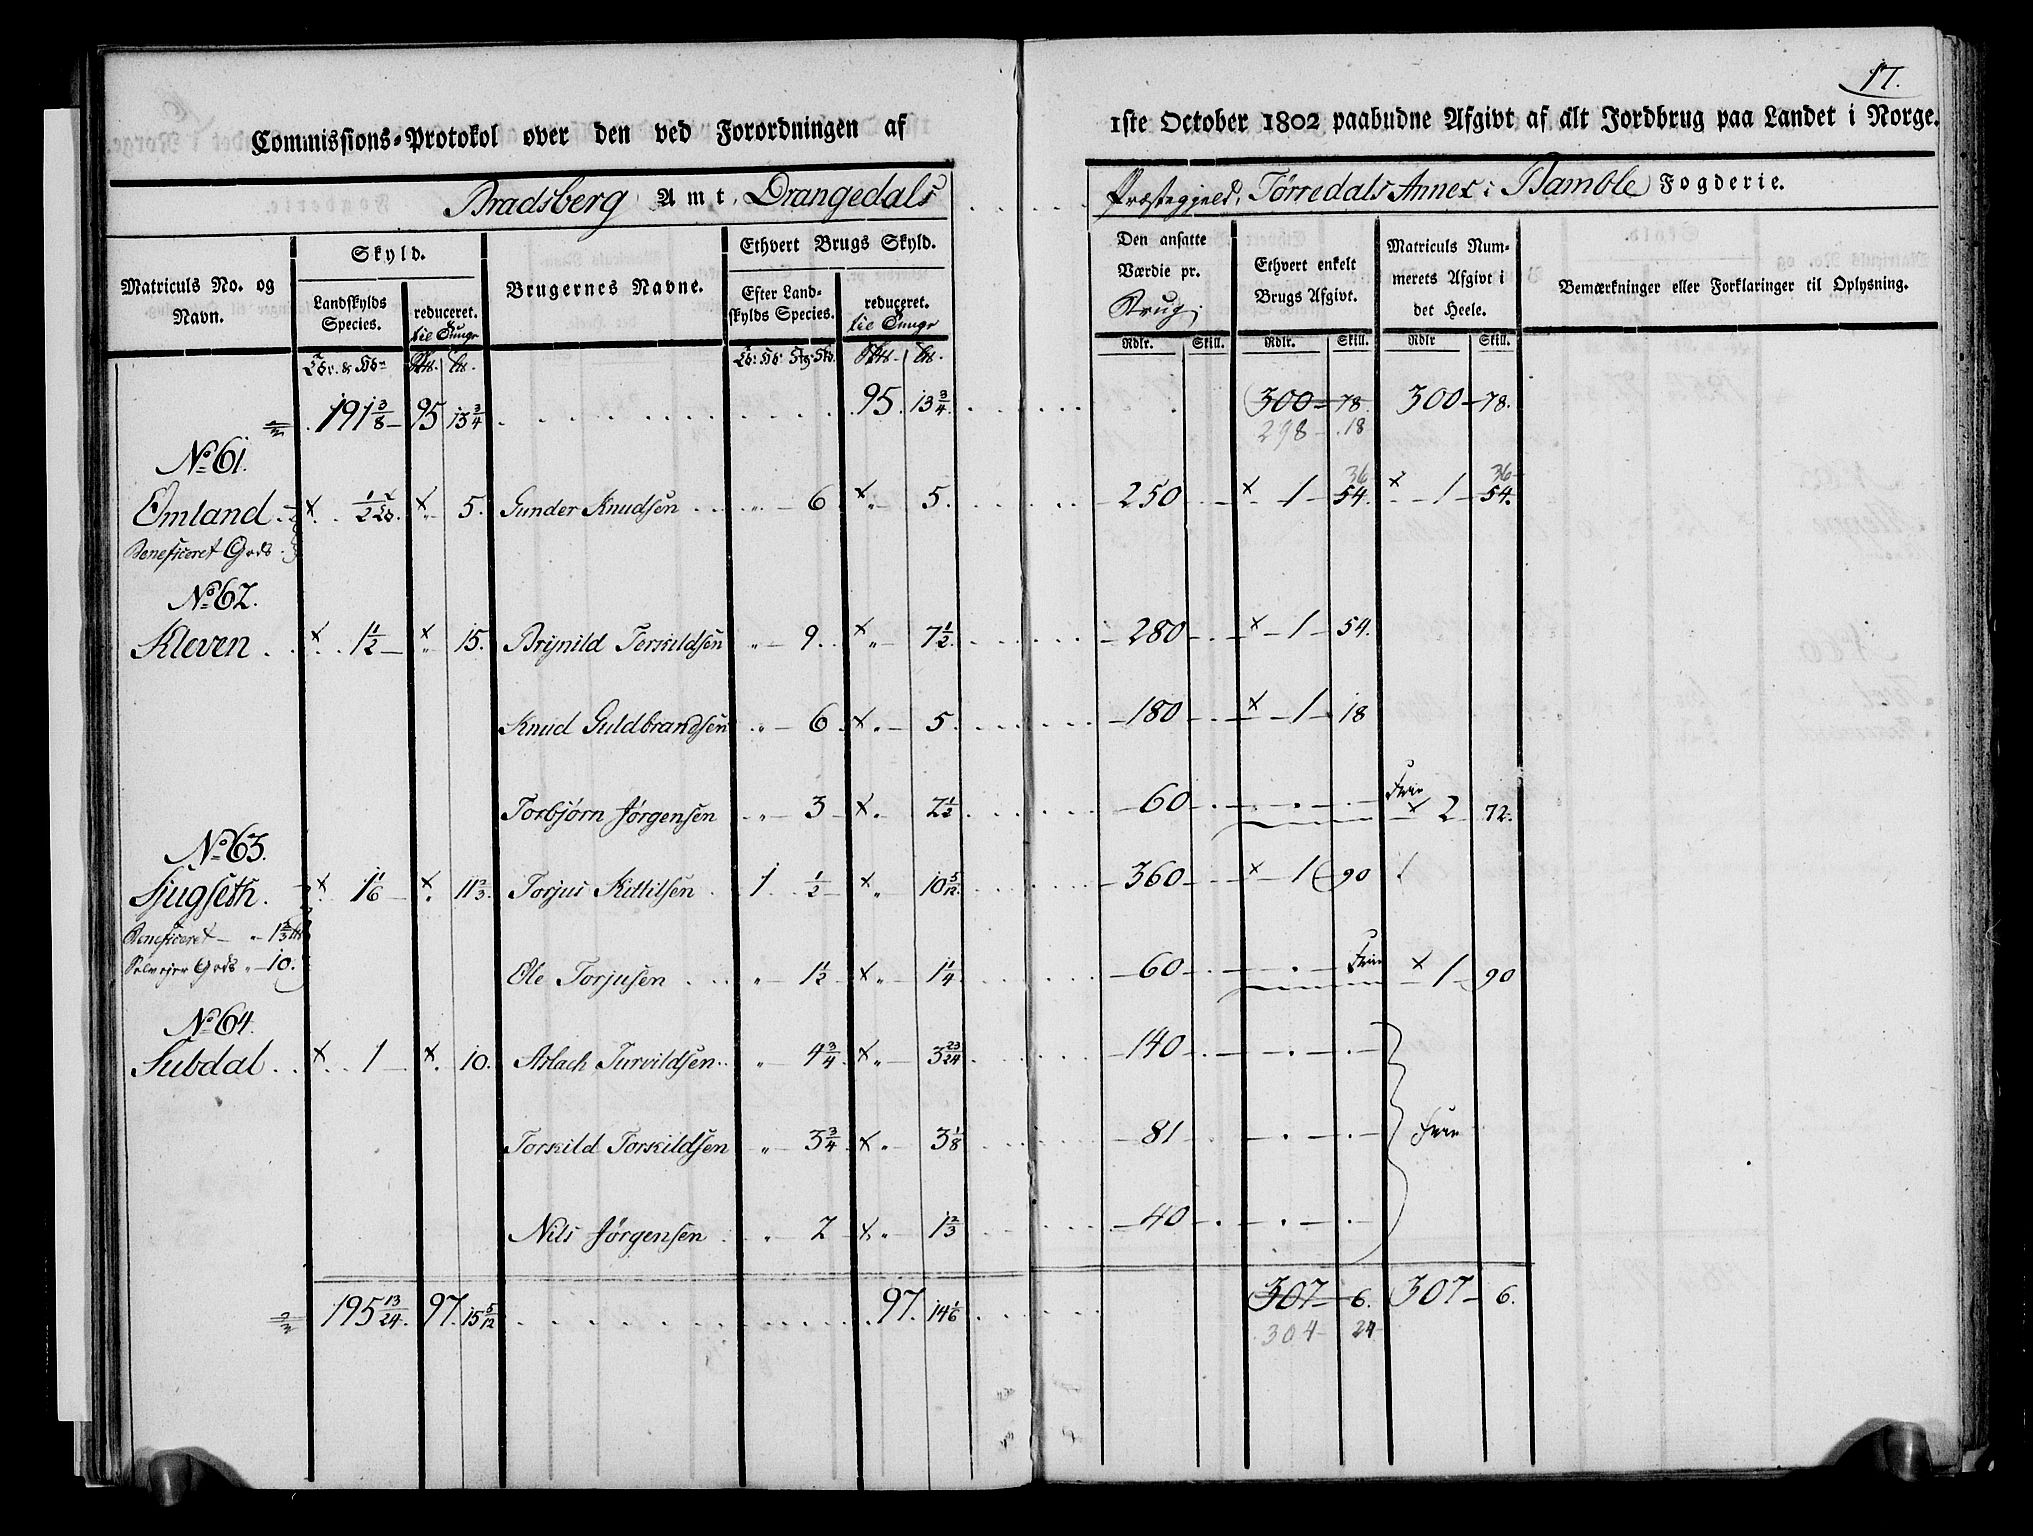 17.
Commissions-Protokol over den ved Forordningen af 1ste October 1802 paabudne Afgivt af alt Jordbrug paa Landet i Norge.
Bradsberg Amt, Drangedals Præstegjeld, Tørredals Annex i Bamble Fogderie.
Matriculs No. og Navn. | Skyld. | Brugernes Navne. | Ethvert Brugs Skyld. | Den ansatte Værdie pr. Brug | Ethvert enkelt Brugs Afgivt. | Matriculs Nummerets Afgivt i det Heele. | Bemærkninger eller Forklaringer til Oplysning.
Landskylds Species. | reduceret. til Tunge | Efter Landskylds Species. | reduceret. til Tunge
Rdlr. | Skill. | Rdlr. | Skill. | Rdlr | Skill.
191 3/8 | 95 | 13 3/4 | 95. | 13 3/4. | 300 - 78. | 300 - 78.
298 - 18
No 61.
36 | 36
Omland. | x 1/2 | x „ 5. | Gunder Knudsen | „ 6 | x „ 5. | 250 | x 1 - 54. | x 1 - 54.
Beneficeret Gods
No 62.
Kleven | x 1 1/2 | x „ 15. | Brynild Terkildsen | „ 9. | x „ 7 1/2. | 280 | x 1 - 54.
Knud Guldbrandsen | „ 6 | x „ 5. | 180 | x 1 - 18
Torbjørn Jørgensen | „ 3 | x „ 2 1/2 | 60 | Frie | x 2 - 72.
No 63.
Sjugseth. | x 1 1/6 | x „ 11 2/3. | Torjus Kittilsen | 1 1/2 | x „ 10 5/12. | 360 | x 1 - 90
Beneficeret „ 1 2/3
Selveier Gods „ 10.
Ole Torjusen | „ 1 1/2 | x „ 1 1/4. | 60 | Frie | x 1 - 90
No 64.
Subdal | x 1 | x 10. | Aslach Turvildsen | „ 4 3/4 | x „ 3 23/24 | 140
Torkild Torkildsen | „ 3 3/4 | x „ 3 1/8 | 81 | Frie
Nils Jørgensen | „ 2 | x „ 1 2/3 | 40
195 13/24. | 97. | 15 5/12 | 97. | 14 1/6 | 307 - 6. | 307 - 6.
304 - 24